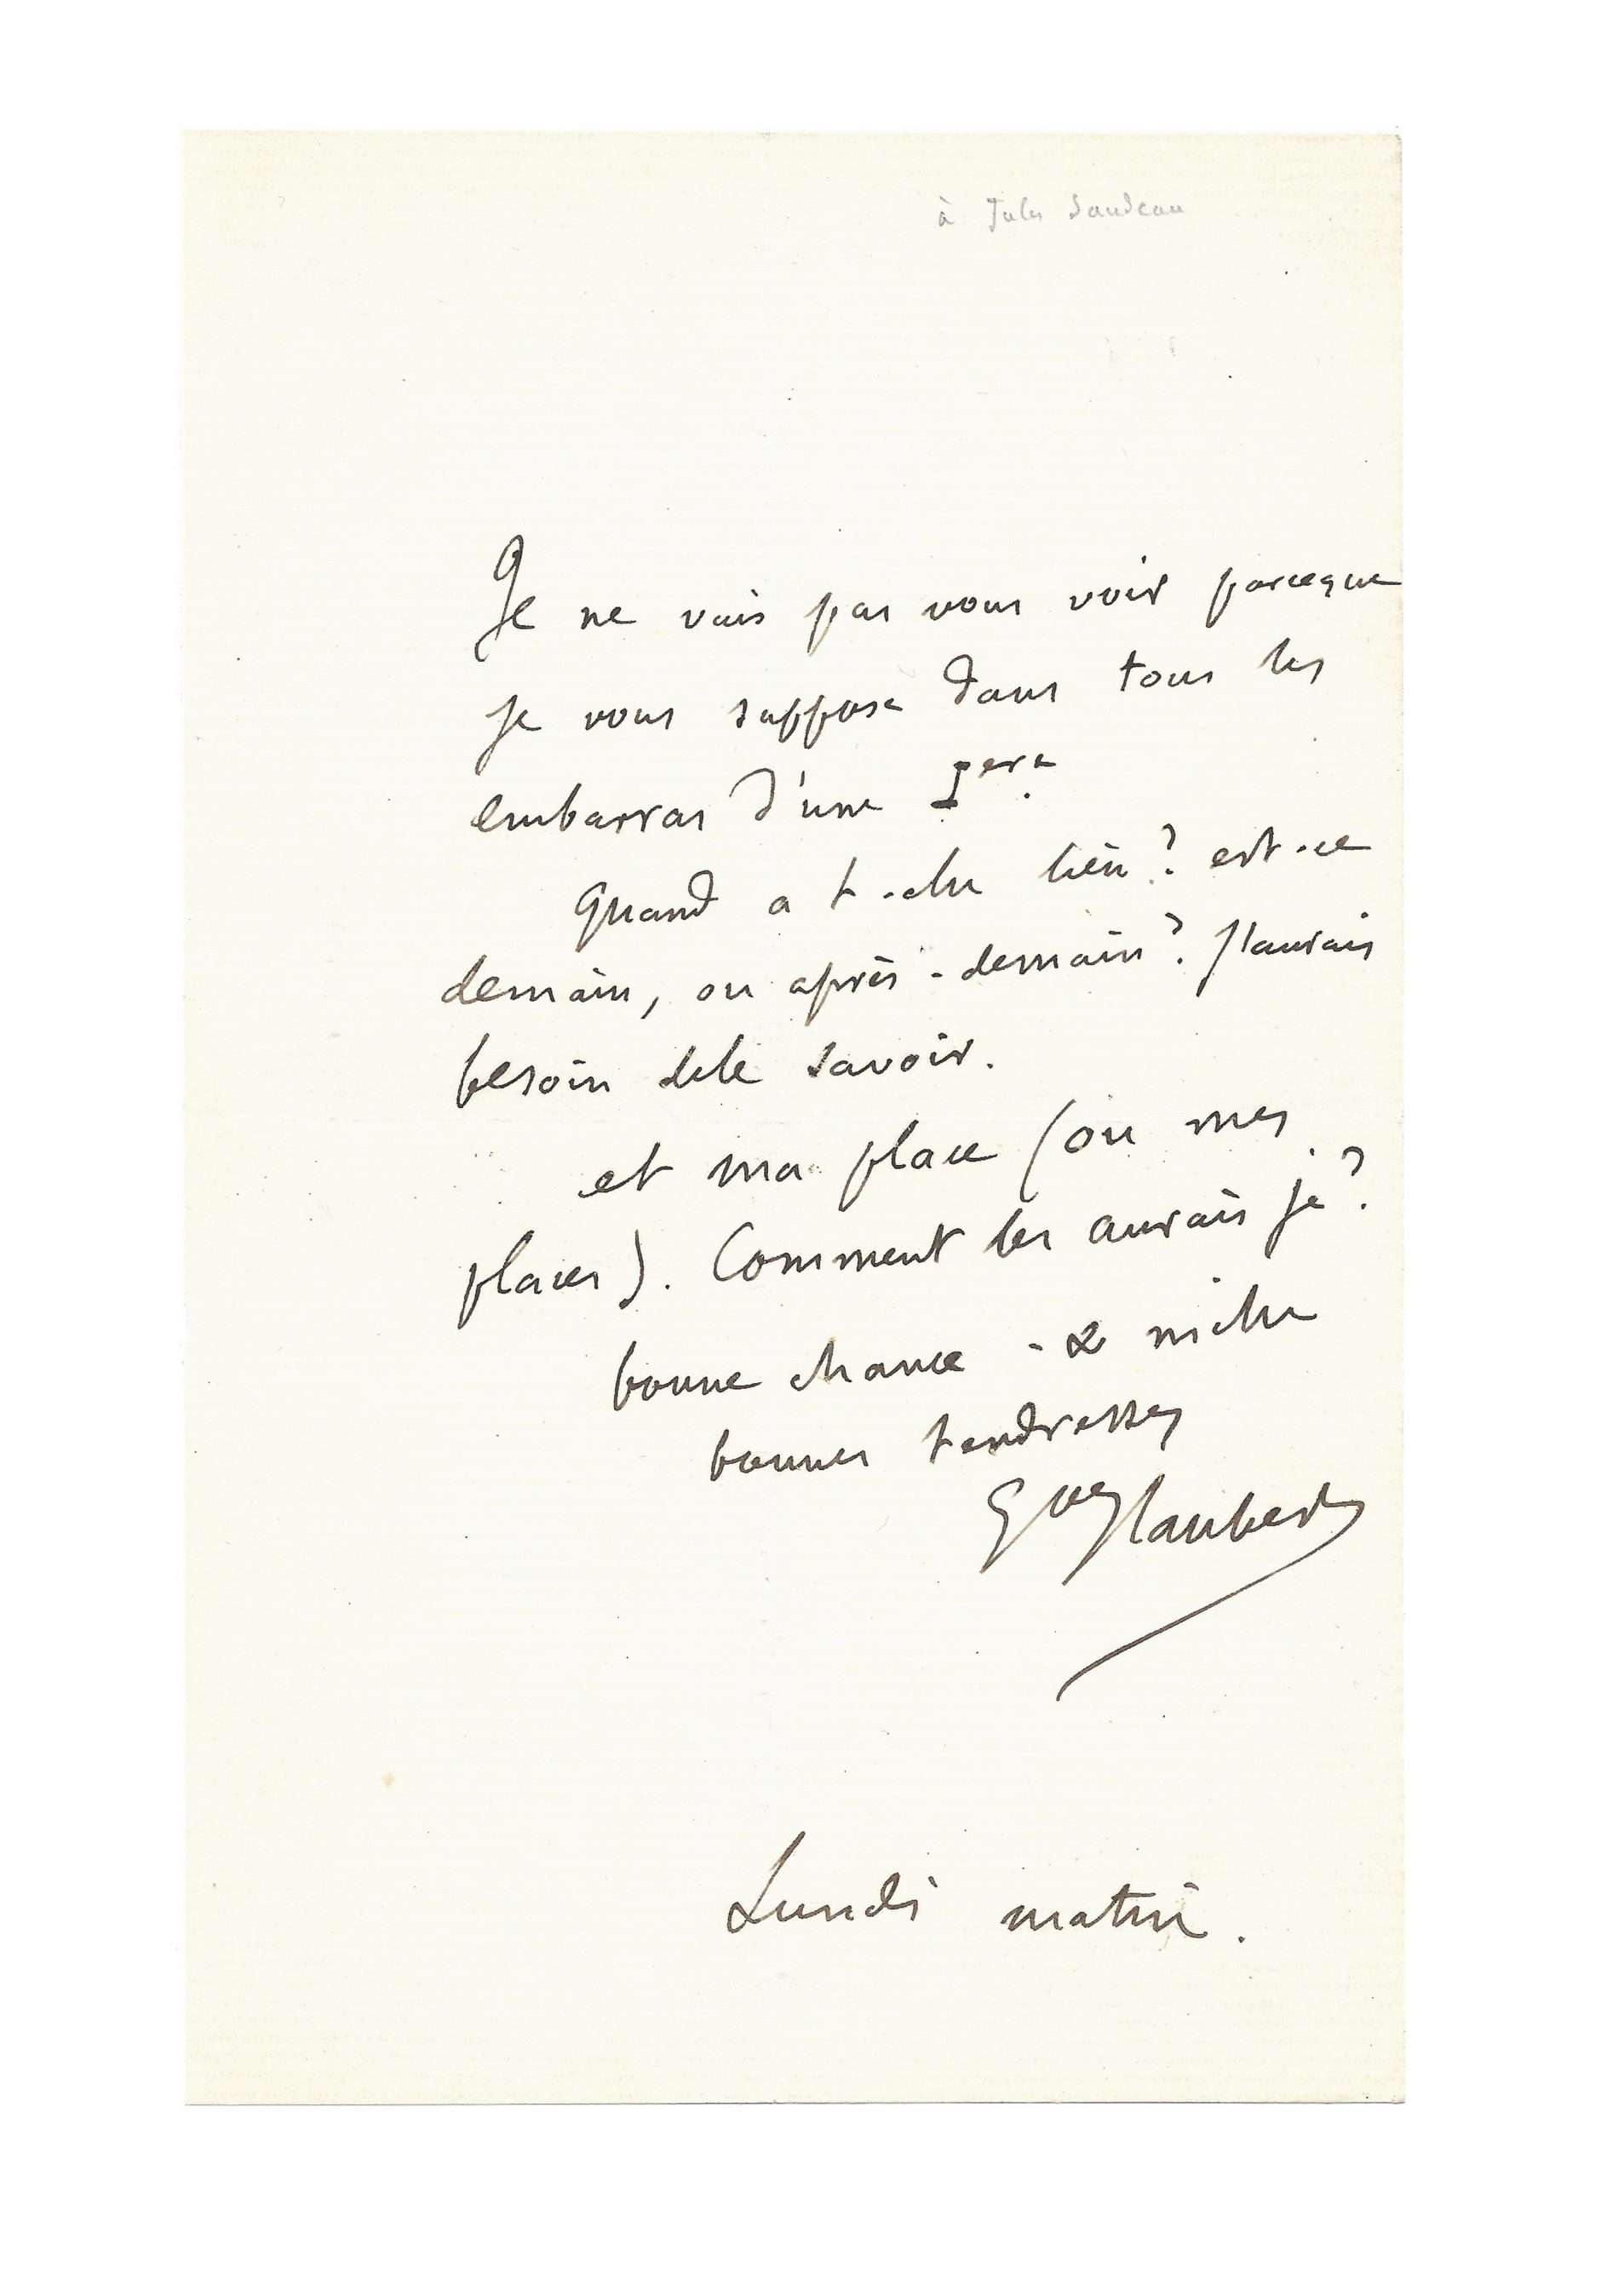 à Jules Sandeau
Je ne vais pas vous voir parceque
je vous suppose dans tous les
embarras d'une Iere.
Quand a t-elle lieu? est-ce
demain, ou après-demain? J'aurais
besoin dele savoir.
et ma place (ou mes
places). Comment les aurais je?
bonne chance - & mille
bonnes tendresses
Gve Flaubert
Lundi matin.